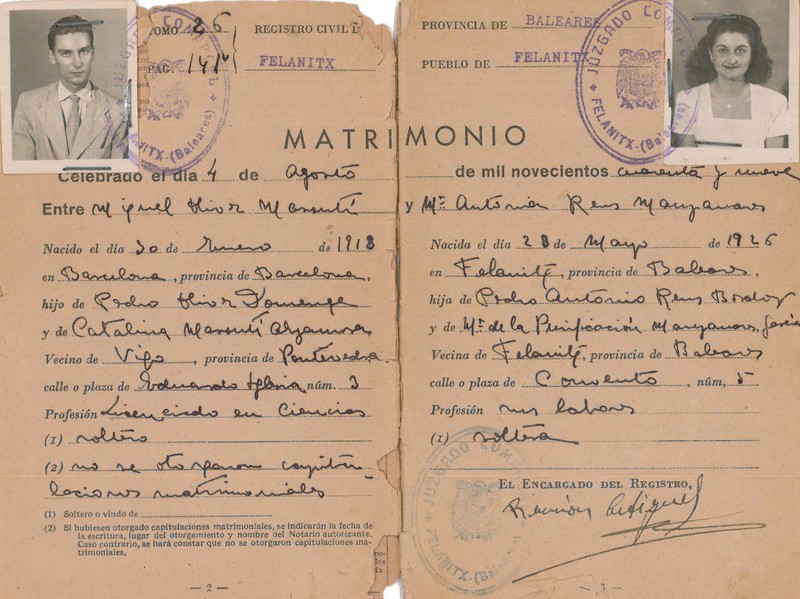 TOMO 26
REGISTRO CIVIL D
PÁG. 141
FELANITX
MATRIMONIO
Celebrado el día 4 de Agosto
Entre Miguel Oliver Massutí
Nacido el día 30 de Enero de 1918
en Barcelona, provincia de Barcelona,
hijo de Pedro Oliver Domenge
y de Catalina Massutí Alzamora
Vecino de Vigo, provincia de Pontevedra
calle o plaza de Eduardo Iglesias núm. 3
Profesión Licenciado en Ciencias
(1) soltero
(2) no se otorgaron capitu-
laciones matrimoniales
(1) Soltero o viudo de
(2) Si hubiesen otorgado capitulaciones matrimoniales, se indicarán la fecha de
la escritura, lugar del otorgamiento y nombre del Notario autorizante.
Caso contrario, se hará constar que no se otorgaron capitulaciones ma-
trimoniales.
— 2 —
PROVINCIA DE BALEARES
PUEBLO DE FELANITX
JUZGADO COMAR
FELANITX-(Baleares)
de mil novecientos cuarenta y nueve
y Mª Antonia Reus Manzanares
Nacida el día 28 de Mayo de 1926
en Felanitx, provincia de Baleares,
hija de Pedro Antonio Reus Bordoy
y de Mª de la Purificación Manzanares García
Vecina de Felanitx, provincia de Baleares
calle o plaza de Convento, núm, 5
Profesión sus labores
(1) soltera
EL ENCARGADO DEL REGISTRO,
JUZGADO COM
FELANITX-(Ba
— 3 —